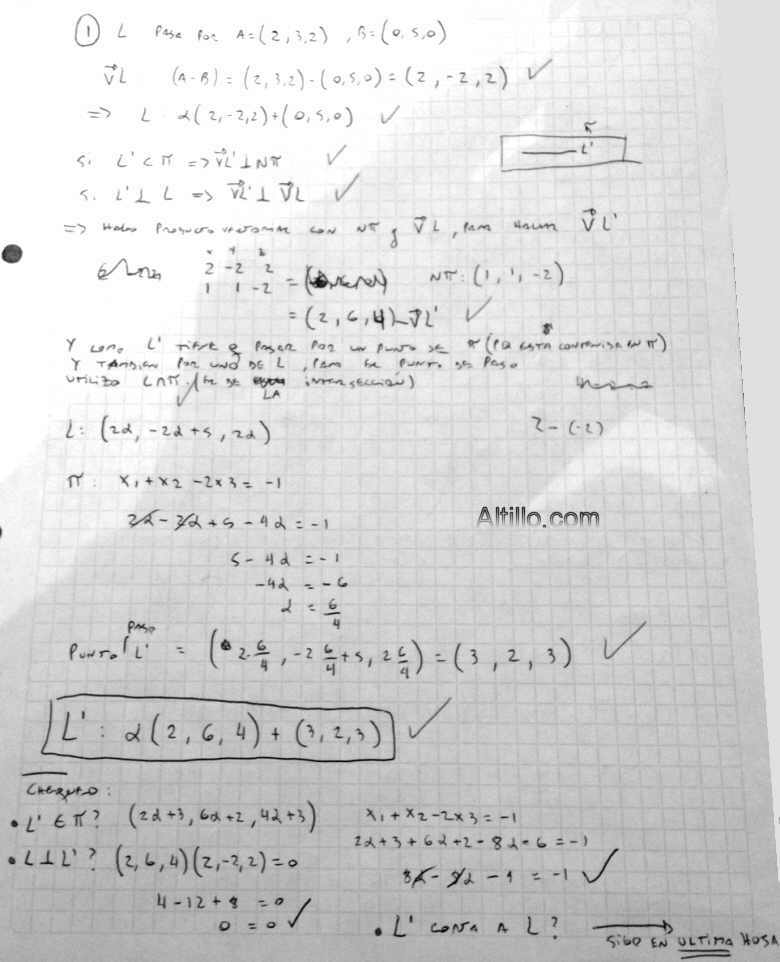 ① L PASA POR A=(2,3,2), B=(0,5,0)
V⃗L (A-B)=(2,3,2)-(0,5,0)=(2,-2,2) ✓
=> L α(2,-2,2)+(0,5,0) ✓
π
L'
Si L'⊂π => V⃗L'⊥Nπ ✓
Si L'⊥L => V⃗L'⊥V⃗L ✓
=> HAGO PRODUCTO VECTORIAL CON Nπ y V⃗L, PARA HALLAR V⃗L'
x y z
2 -2 2
1 1 -2 =
Nπ: (1,1,-2)
= (2,6,4) V⃗L' ✓
Y COMO L' TIENE q PASAR POR UN PUNTO DE π (PQ ESTA CONTENIDA EN π)
Y TAMBIEN POR UNO DE L, PARA PUNTO DE PASO
UTILIZO L∩π. DE LA INTERSECCIÓN) ✓
L: (2α, -2α+5, 2α)
2-(-2)
π: x1+x2-2x3=-1
Altillo.com
2α-2α+5-4α=-1
5-4α=-1
-4α=-6
α=6/4
PUNTO PASO L' = (2·6/4, -2 6/4+5, 2 6/4)=(3,2,3) ✓
L': α(2,6,4)+(3,2,3) ✓
CHEQUEO:
• L'∈π? (2α+3, 6α+2, 4α+3) x1+x2-2x3=-1
2α+3+6α+2-8α-6=-1
8α-8α-1=-1 ✓
• L⊥L'? (2,6,4)(2,-2,2)=0
4-12+8=0
0=0 ✓
• L' CORTA A L? → SIGO EN ULTIMA HOJA